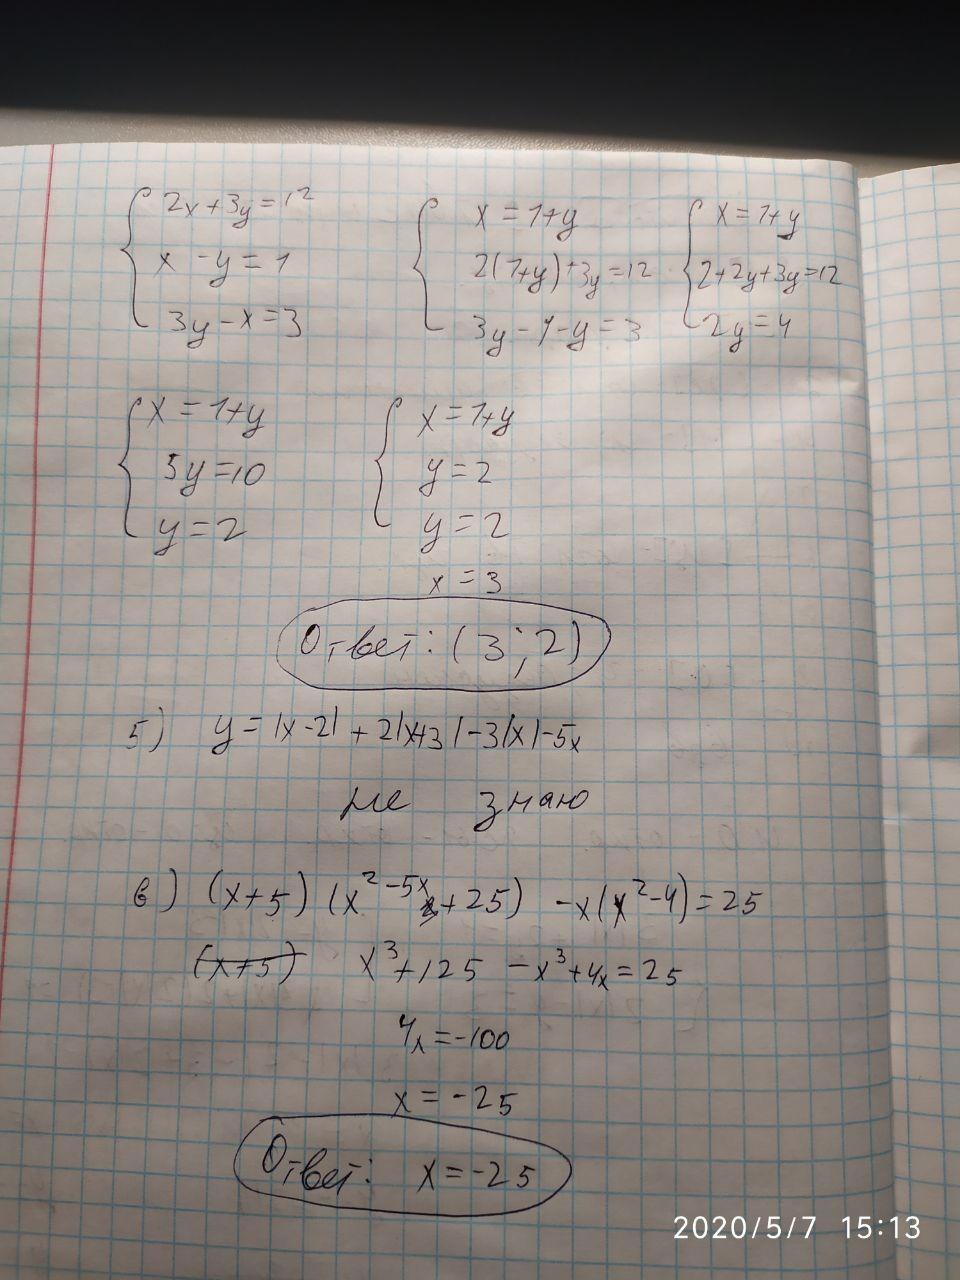 2x+3y=12
x-y=1
3y-x=3
x=1+y
2(1+y)+3y=12
3y-1-y=3
x=1+y
2+2y+3y=12
2y=4
x=1+y
5y=10
y=2
x=1+y
y=2
y=2
x=3
Ответ: (3;2)
5) y=|x-2|+2|x+3|-3|x|-5x
не знаю
6) (x+5)(x²-5x+25)-x(x²-4)=25
(x+5) x³+125-x³+4x=25
4x=-100
x=-25
Ответ: x=-25
2020/5/7 15:13